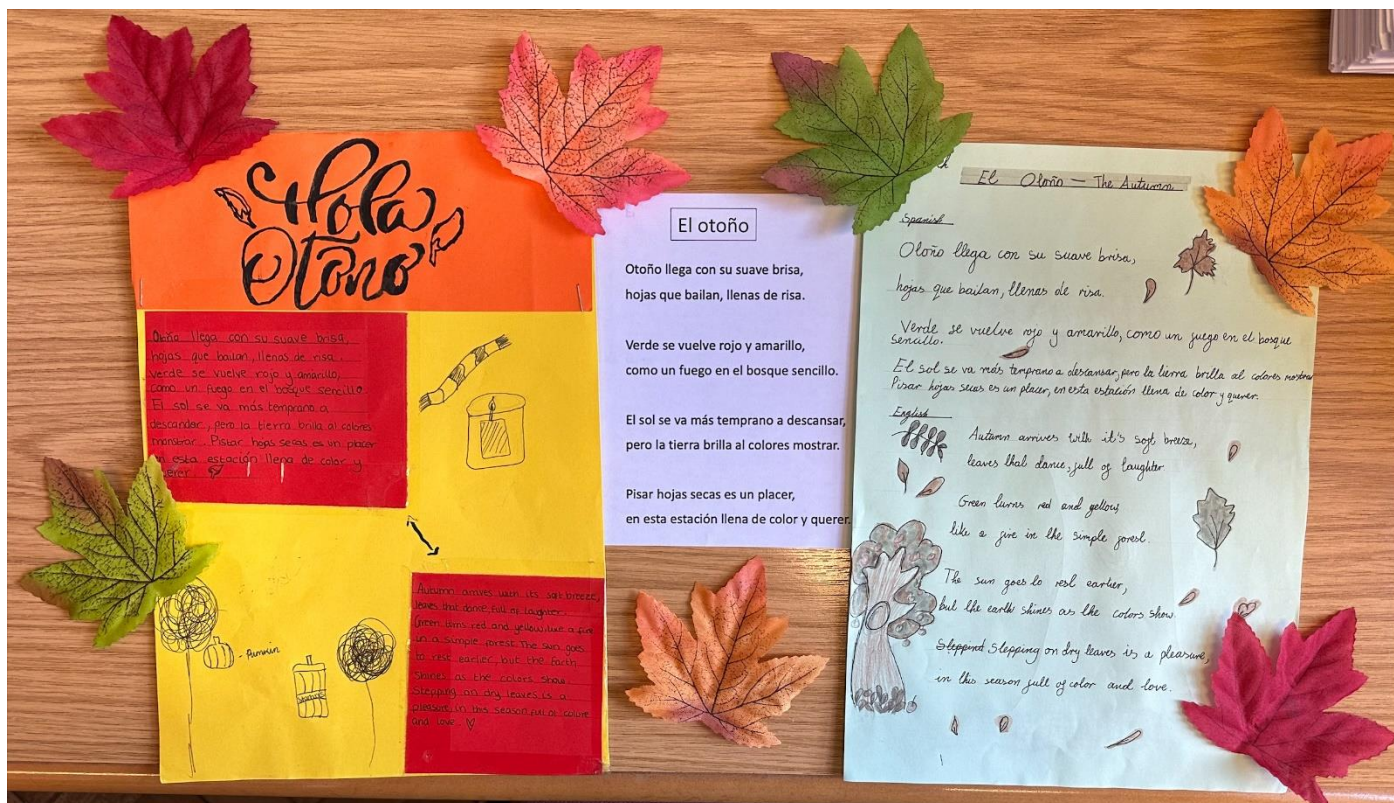 Hola
Otoño
Otoño llega con su suave brisa,
hojas que bailan, llenas de risa.
verde se vuelve rojo y amarillo,
como un fuego en el bosque sencillo
El sol se va más temprano a
descander, pero la tierra brilla al colores
monstrar. Pistar hojas secas es un placer
en esta estación llena de color y
querer.
- Pumkin
Autumn arrives with its soft breeze,
leaves that dance, full of laughter.
Green turns red and yellow, like a fire
in a simple forest. The sun goes
to rest earlier, but the Earth
shines as the colors show.
Stepping on dry leaves is a
pleasure, in this season full of colour
and love.
El otoño
Otoño llega con su suave brisa,
hojas que bailan, llenas de risa.
Verde se vuelve rojo y amarillo,
como un fuego en el bosque sencillo.
El sol se va más temprano a descansar,
pero la tierra brilla al colores mostrar.
Pisar hojas secas es un placer,
en esta estación llena de color y querer.
El Otoño – The Autumn
Spanish
Otoño llega con su suave brisa,
hojas que bailan, llenas de risa.
Verde se vuelve rojo y amarillo, como un fuego en el bosque
sencillo.
El sol se va más temprano a descansar, pero la tierra brilla al colores mostrar
Pisar hojas secas es un placer, en esta estación llena de color y querer.
English
Autumn arrives with it's soft breeze,
leaves that dance, full of laughter
Green turns red and yellow,
like a fire in the simple forest.
The sun goes to rest earlier,
but the earth shines as the colors show
Steppind Stepping on dry leaves is a pleasure,
in this season full of color and love.